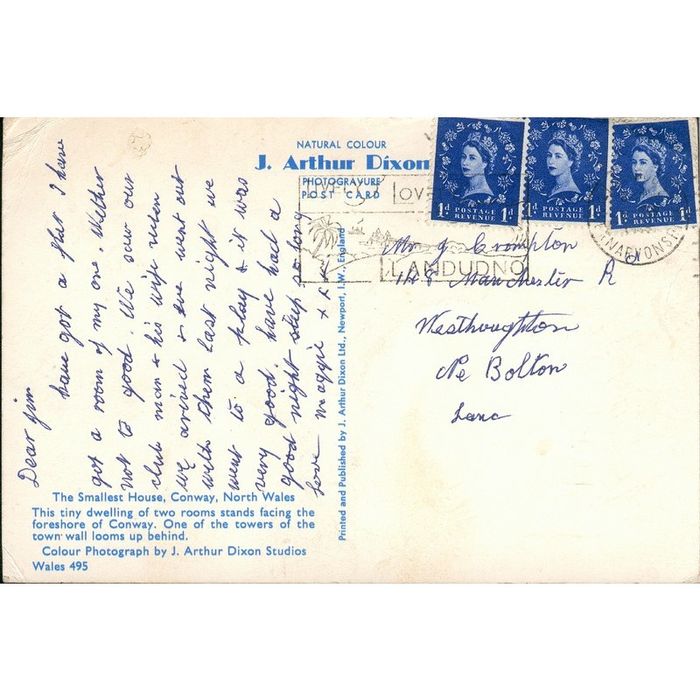 NATURAL COLOUR
J. Arthur Dixon
PHOTOGRAVURE
POST CARD
1d POSTAGE REVENUE 1d
1d POSTAGE REVENUE 1d
1d POSTAGE REVENUE 1d
LLANDUDNO
Dear Jim
have got a flat I have
got a room of my one. Wether
not to good. We saw our
club man & his wife when
we arived & we went out
with them last night we
went to a play & it was
very good. have had a
good night sleep so long
love Maggie x x x
Mr J Crompton
Manchester R
Westhoughton
Nr Bolton
Lanc
Printed and Published by J. Arthur Dixon Ltd., Newport, I.W., England
The Smallest House, Conway, North Wales
This tiny dwelling of two rooms stands facing the
foreshore of Conway. One of the towers of the
town wall looms up behind.
Colour Photograph by J. Arthur Dixon Studios
Wales 495